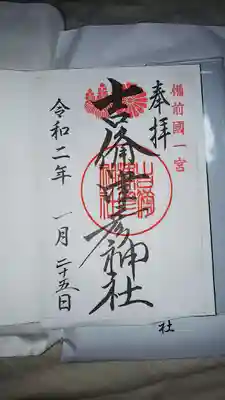 備前國一宮
奉拝
吉備津彦神社
令和二年 一月 二十五日
社